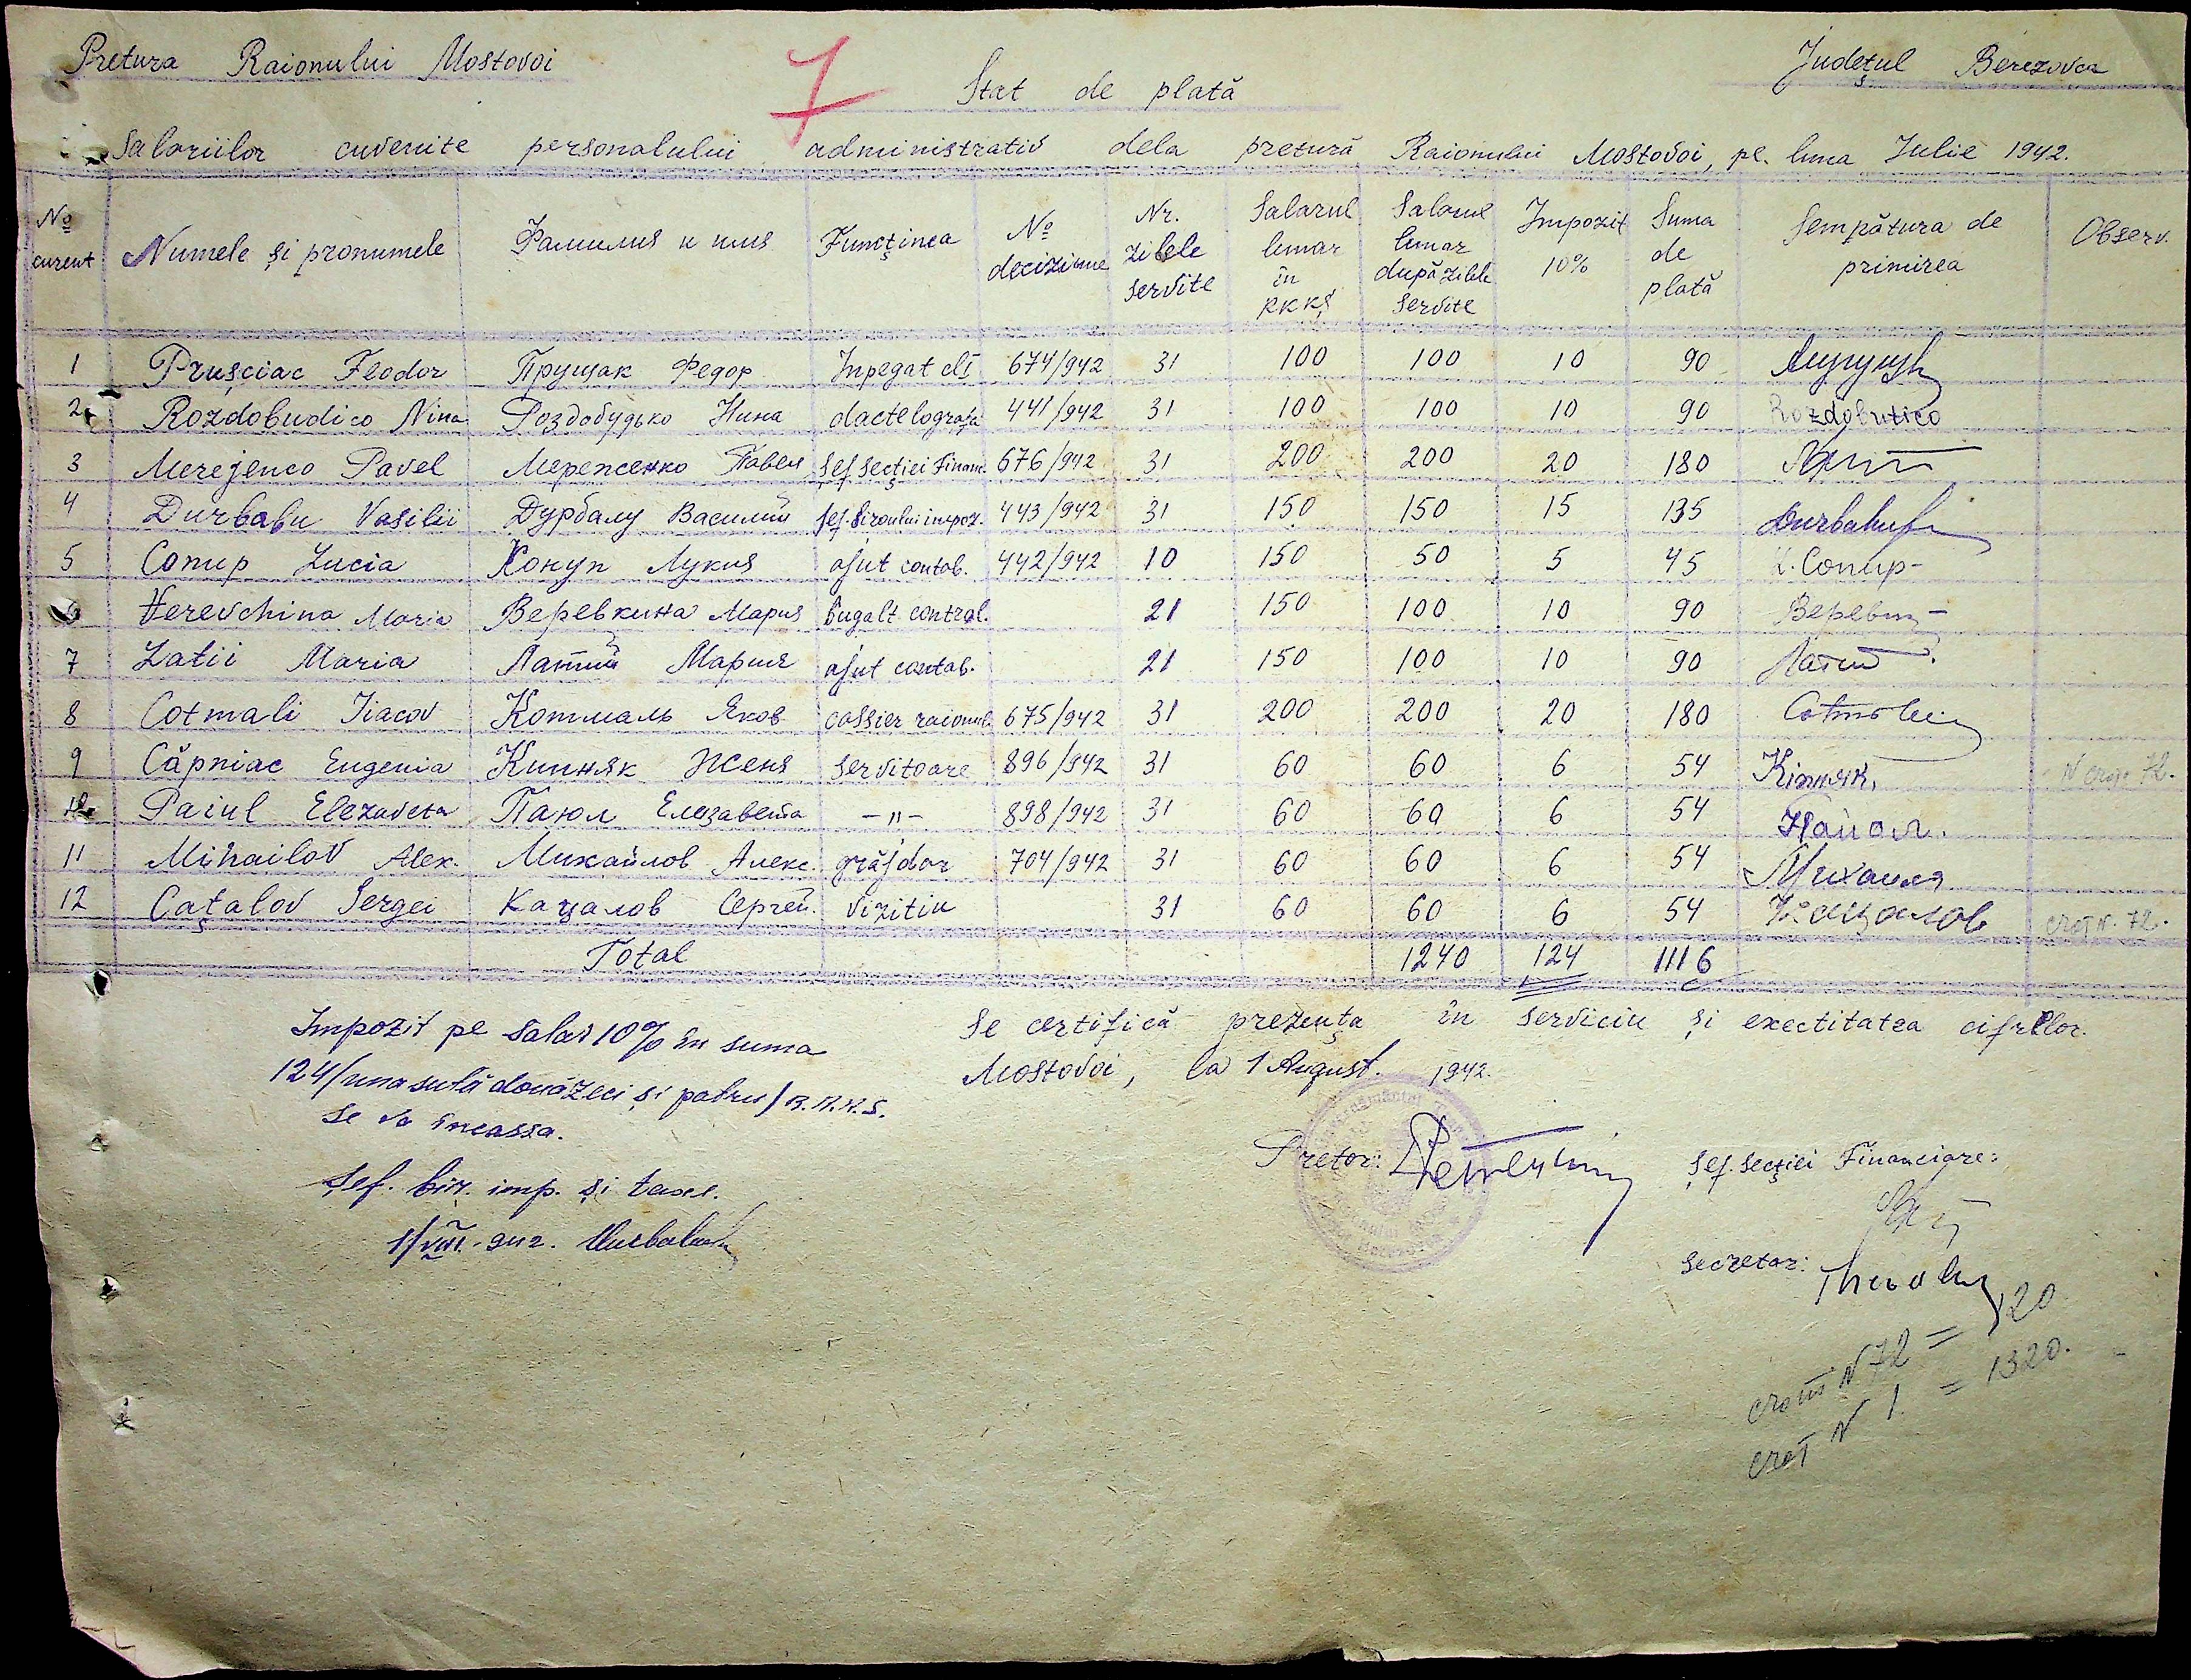 Pretura Raionului Mostovoi
7
Județul Berezovca
Stat de plată
Salariilor cuvenite personalului administrativ dela pretură Raionului Mostovoi, pe luna Iulie 1942.
№ curent Numele și pronumele Фамилия и имя Funcținea № deciziune Nr. zilele servite Salarul lunar în RKKS Salarul lunar după zilele servite Impozit 10% Suma de plată Sempătura de primirea Observ.
1 Prușciac Feodor Прущак Федор Inpegat cl I 674/942 31 100 100 10 90
2 Rozdobudico Nina Роздобудько Нина dactelografa 441/942 31 100 100 10 90 Rozdobutico
3 Merejenco Pavel Мереженко Павел șef secției Financ. 676/942 31 200 200 20 180
4 Durbalu Vasilii Дурбалу Василий șef. biroului impoz. 443/942 31 150 150 15 135 Durbalu
5 Conup Lucia Конуп Лукия ajut contab. 442/942 10 150 50 5 45 L. Conup
6 Verevchina Maria Веревкина Мария bugalt contral. 21 150 100 10 90 Веревки
7 Latii Maria Латий Мария ajut contab. 21 150 100 10 90 Латий
8 Cotmali Iiacov Котмаль Яков cassier raionul. 675/942 31 200 200 20 180 Cotmali
9 Căpniac Eugenia Кипняк Женя servitoare 896/942 31 60 60 6 54 Кіпняк. N crot 72.
10 Paiul Elezaveta Паюл Елезавета —"— 898/942 31 60 60 6 54 Пайол.
11 Mihailov Alex. Михайлов Алекс. grăjdar 704/942 31 60 60 6 54 Михайля
12 Cațalov Sergei Кацалов Сергей. Vizitiu 31 60 60 6 54 Кацалов crot N. 72.
Total 1240 124 1116
Impozit pe salar 10% în suma
124/una sută douăzeci și patru/ R.K.K.S.
se va încassa.
Șef. bir. imp. și taxel.
1/VIII-942. Durbalu
Se certifică prezența în serviciu și exectitatea cifrelor.
Mostovoi, la 1 August. 1942.
Pretor:
Șef. secției Financiare:
Secretar:
crot N 72 = 120
crot N 1. = 1320.